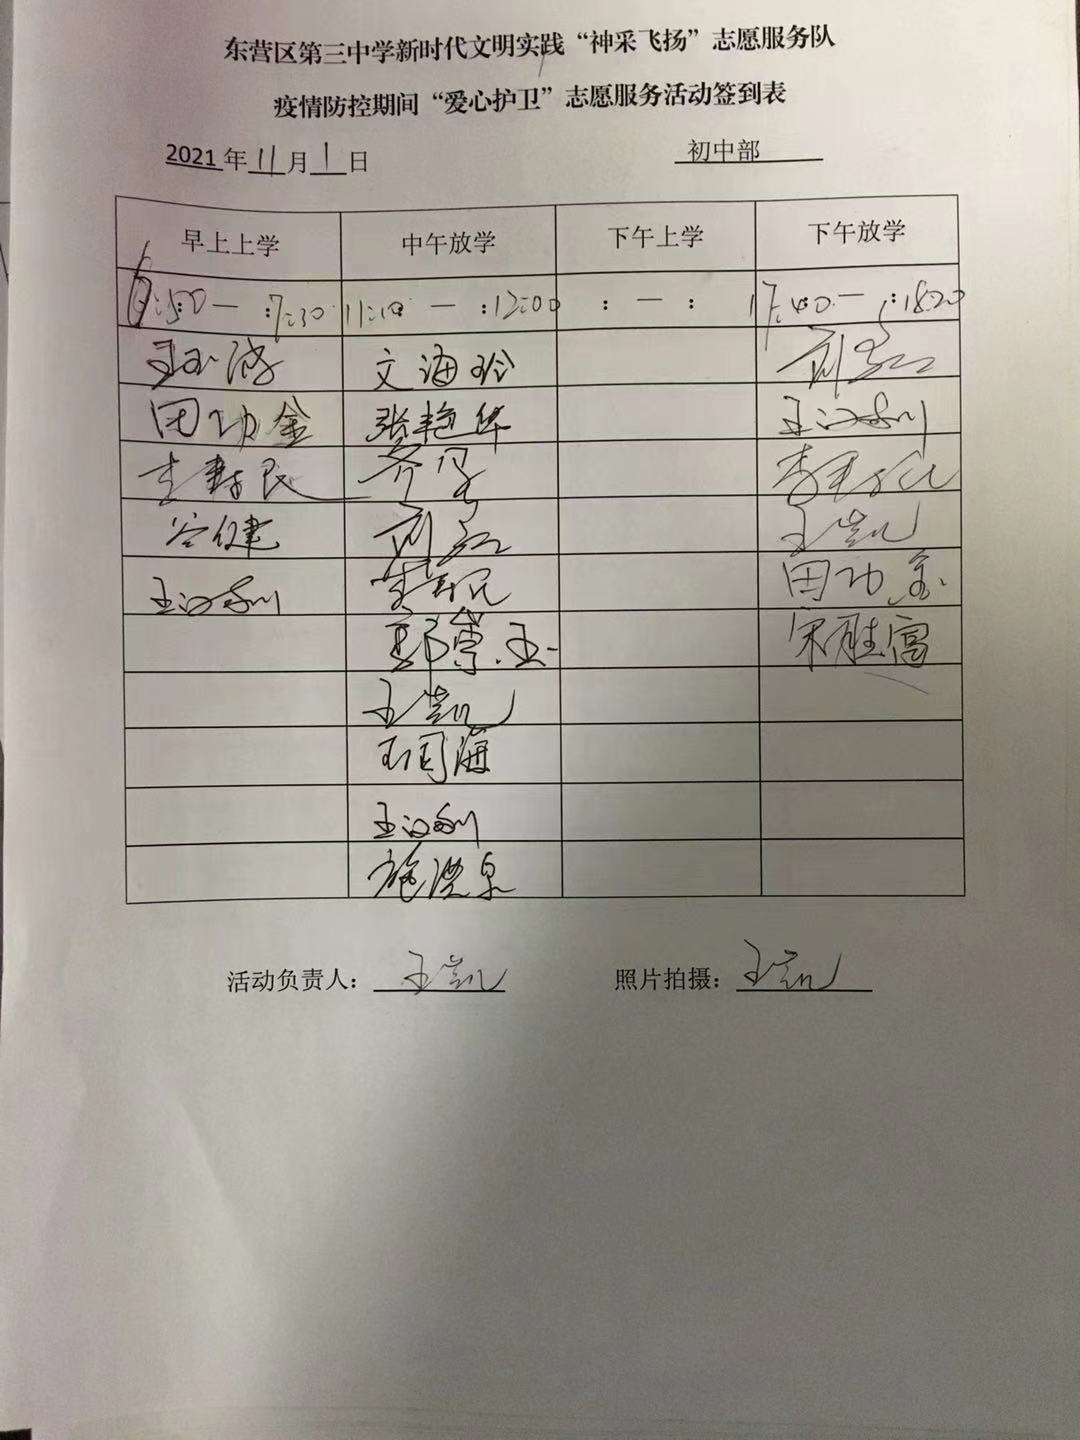 东营区第三中学新时代文明实践“神采飞扬”志愿服务队
疫情防控期间“爱心护卫”志愿服务活动签到表
2021年11月1日 初中部
早上上学 中午放学 下午上学 下午放学
6:50— :7:30 11:10 — :12:00 : — : 17:40— :18:20
文海玲
田功金 张艳华 王汉利
谷健 王凯
王汉利 田功金
宋胜富
王凯
王同海
王汉利
施洪泉
活动负责人: 王凯 照片拍摄: 王凯